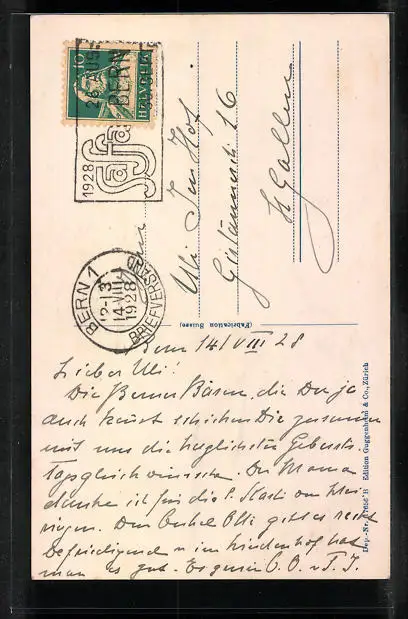 10
HELVETIA
26. AUG.
BERN
1928
Saffa
BERN 1
12-13
14.VIII
1928
BRIEFVERSAND
Uli Im Hof
St Gallen
(Fabrication Suisse)
Dep.-Nr. B Edition Guggenheim & Co., Zürich
Bern 14/VIII 28
Lieber Uli!
Die Berner Basen, die Du ja
auch kennst schicken Dir zusammen
mit uns die herzlichsten Geburts-
tagsglückwünsche. Der Mama
danke ich für die l. Karte von
Dem Onkel Otti geht es recht
befriedigend u. im Lindenhof hat
man es gut. Es grüssen O. O. u. T. J.